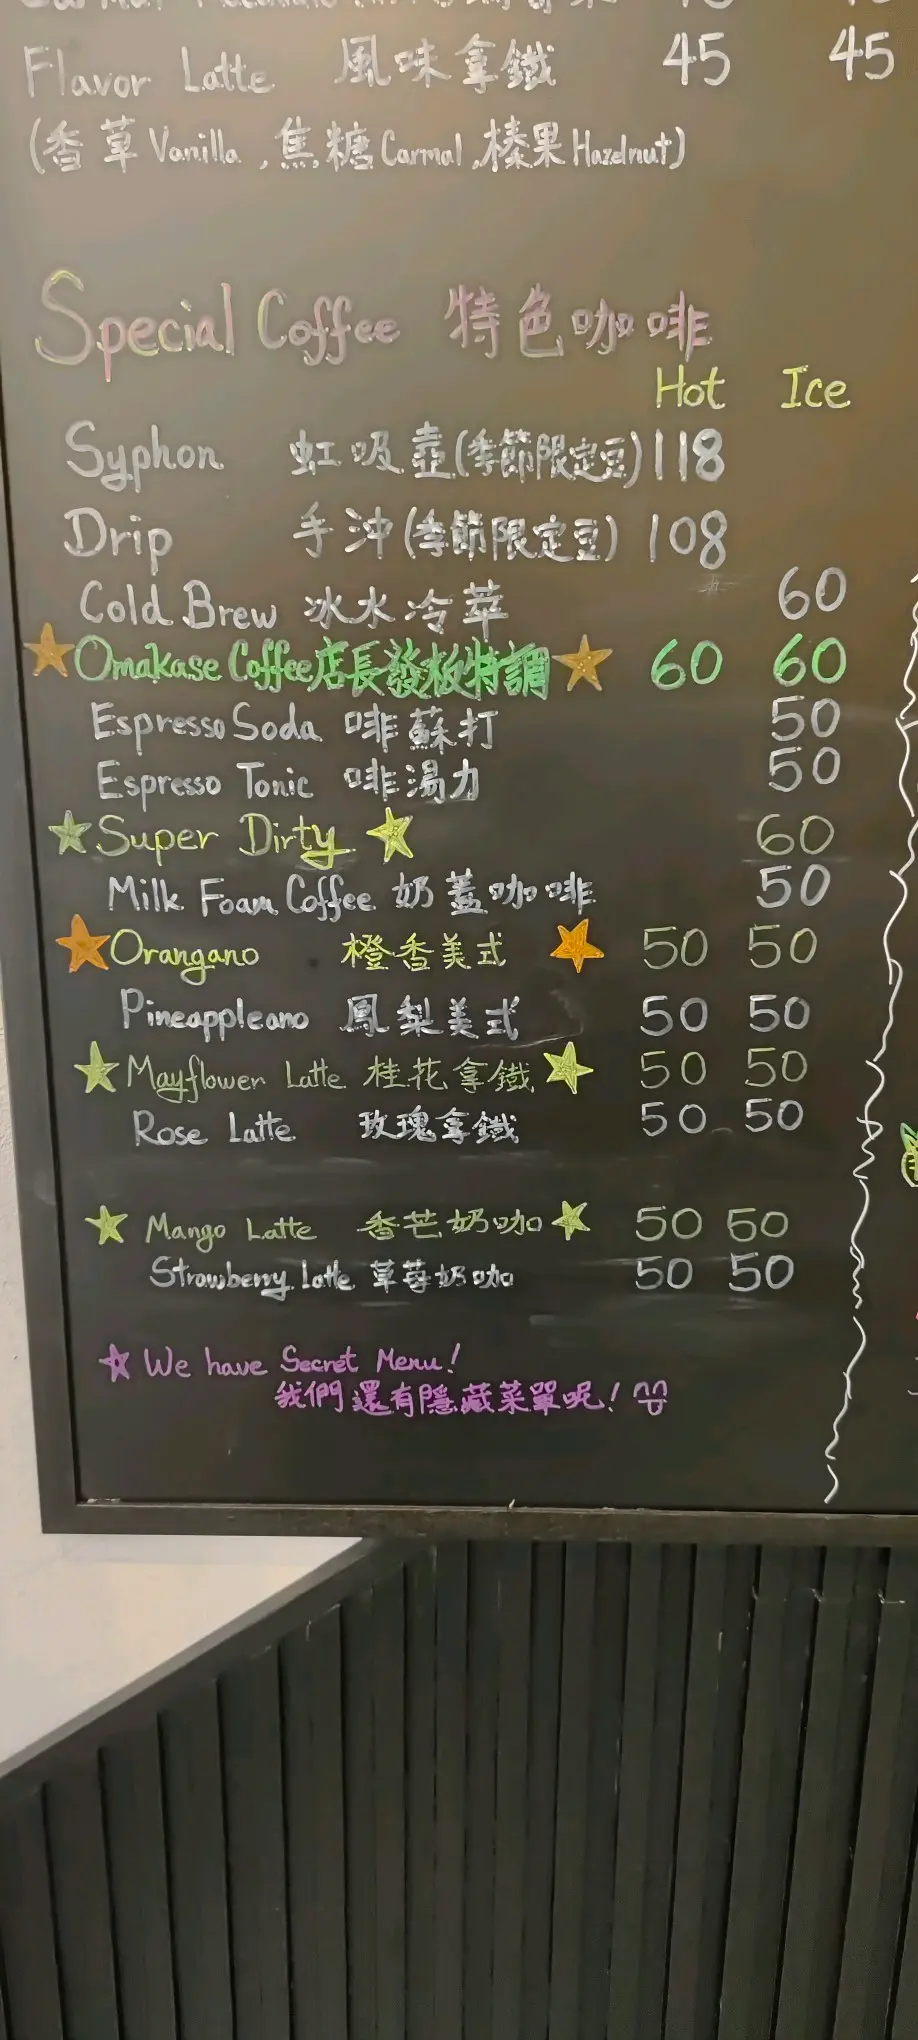 Flavor Latte 風味拿鐵 45 45
(香草Vanilla,焦糖Carmal,榛果Hazelnut)
Special Coffee 特色咖啡
Hot Ice
Syphon 虹吸壺(季節限定豆) 118
Drip 手沖(季節限定豆) 108
Cold Brew 冰水冷萃 60
Omakase Coffee店長發板特調 60 60
Espresso Soda 啡蘇打 50
Espresso Tonic 啡湯力 50
Super Dirty 60
Milk Foam Coffee 奶蓋咖啡 50
Orangano 橙香美式 50 50
Pineappleano 鳳梨美式 50 50
Mayflower Latte 桂花拿鐵 50 50
Rose Latte 玫瑰拿鐵 50 50
Mango Latte 香芒奶咖 50 50
Strawberry Latte 草莓奶咖 50 50
We have Secret Menu!
我們還有隱藏菜單呢!